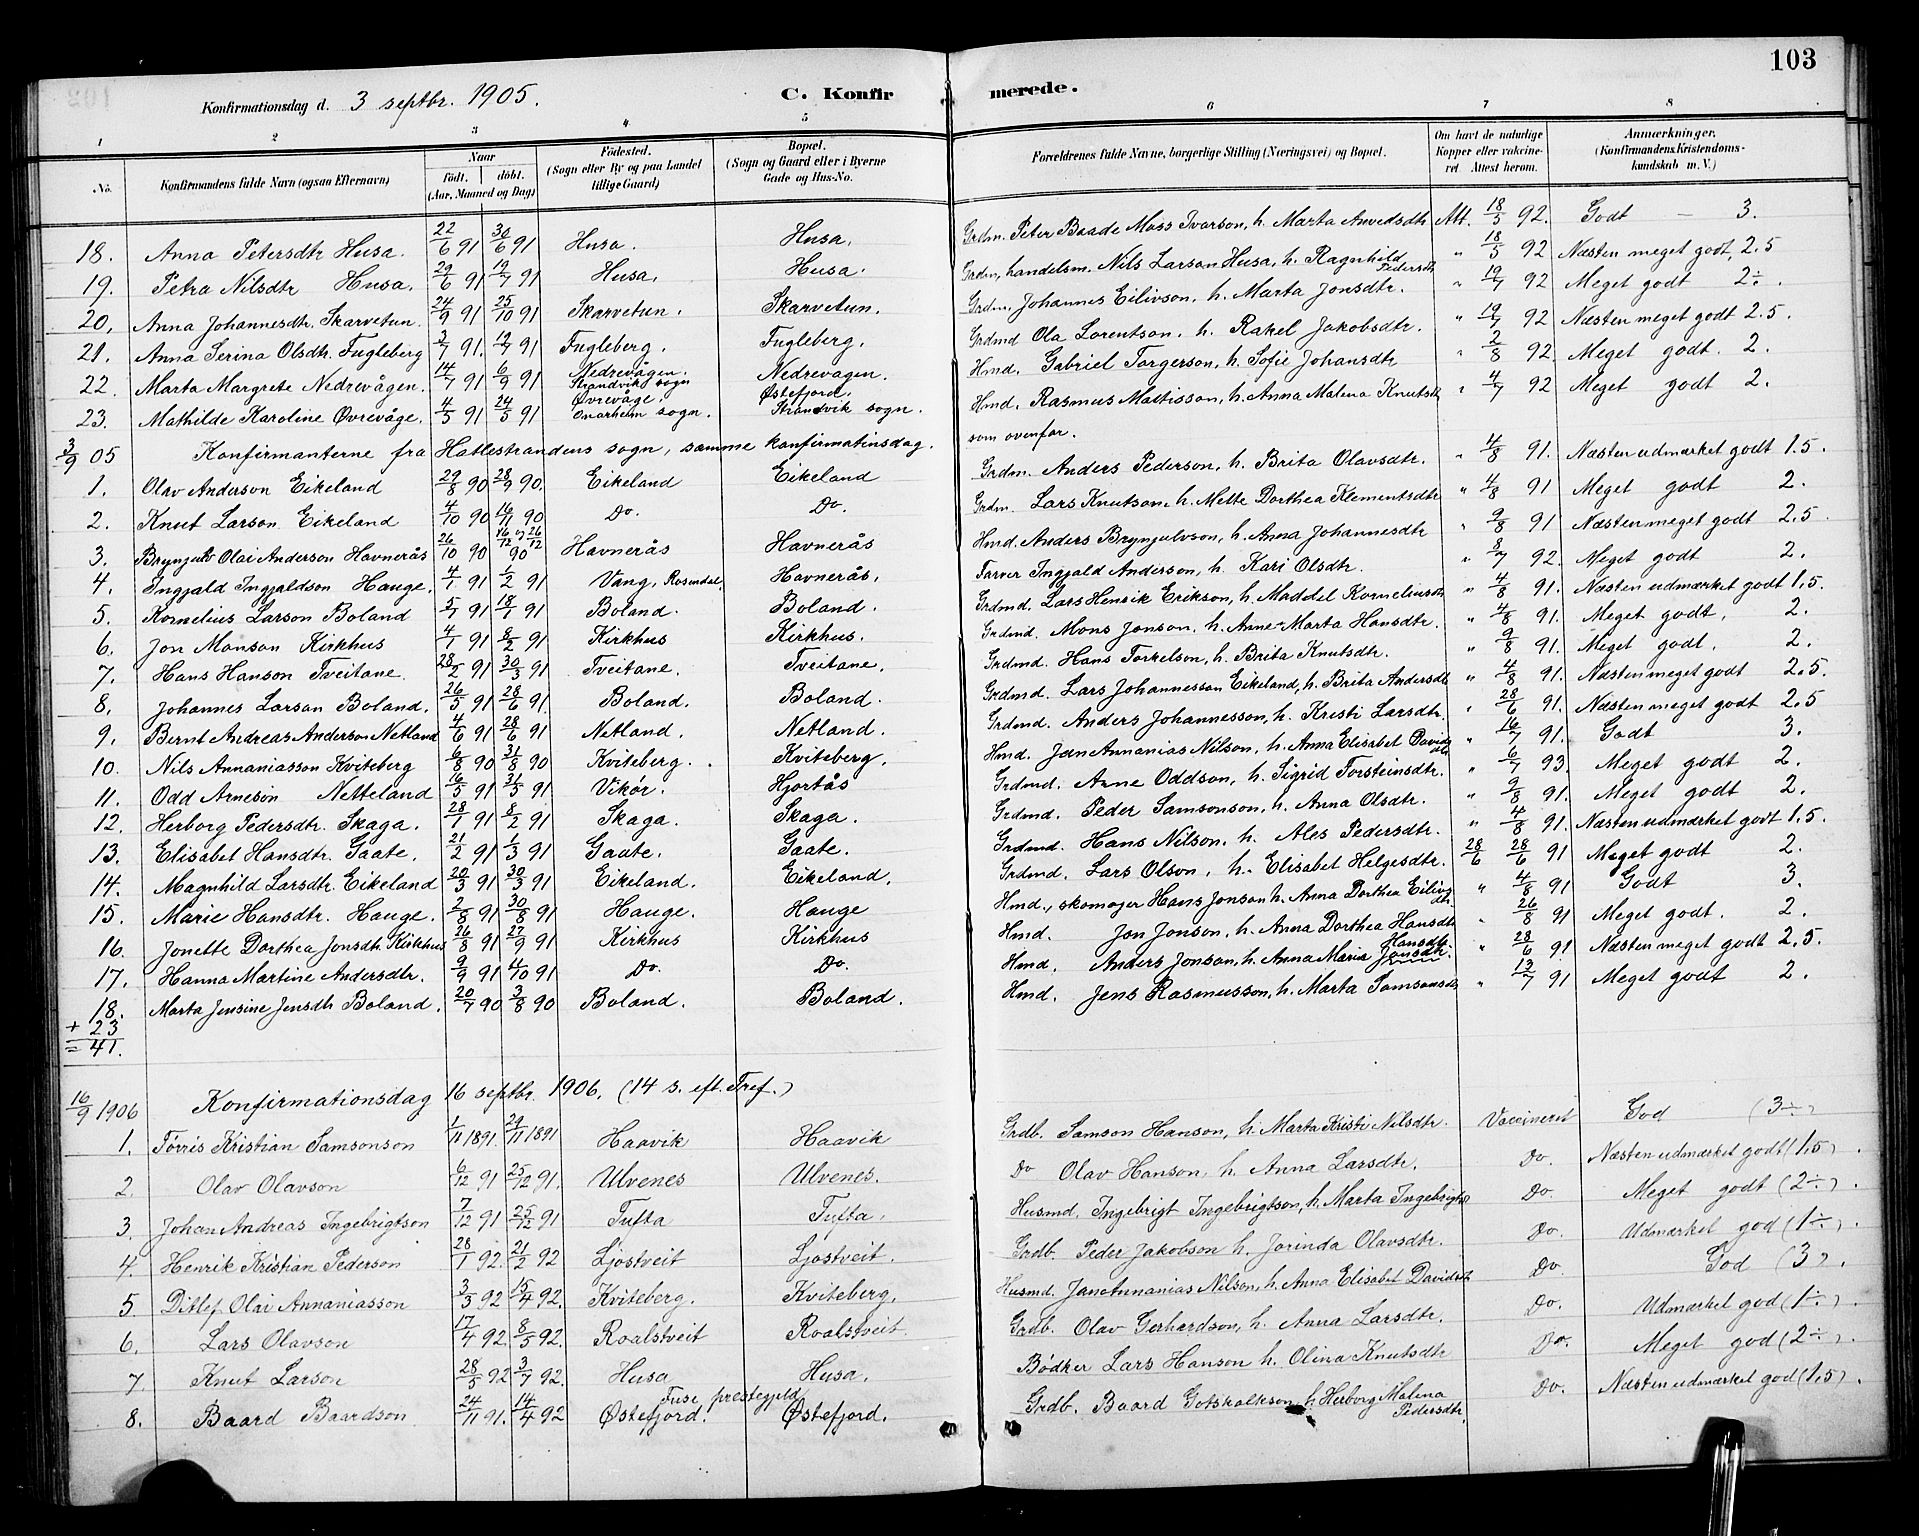 103
Konfirmationsdag d. 3 septbr. 1905. C. Konfirmerede.
1 2 3 4 5 6 7 8
No. Konfirmandens fulde Navn (ogsaa Efternavn) Naar födt. döbt. (Aar, Maaned og Dag) Födested. (Sogn eller By og paa Landet tillige Gaard) Bopæl. (Sogn og Gaard eller i Byerne Gade og Hus-No. Forældrenes fulde Navne, borgerlige Stilling (Næringsvei) og Bopæl. Om havt de naturlige Kopper eller vaccineret Attest herom. Anmærkninger. (Konfirmandens Kristendomskundskab m. V.)
18. Anna Petersdtr Husa. 22/6 91 30/6 91 Husa. Husa. Grdm. Peter Baade Moss Ivarson, h. Marta Amundsdtr Att. 18/5 92. Godt — 3.
19. Petra Nilsdtr Husa. 29/6 91 19/7 91 Husa. Husa. Grdm, handelsm. Nils Larson Husa, h. Ragnhild Pedersdtr " 18/5 92 Næsten meget godt, 2.5
20. Anna Johannesdtr. Skarvetun. 24/9 91 25/10 91 Skarvetun. Skarvetun. Grdm. Johannes Eilivson, h. Marta Jonsdtr. " 19/7 92 Meget godt 2÷.
21. Anna Serina Olsdtr. Fugleberg 3/7 91. 19/7 91 Fugleberg. Fugleberg. Grdmd Ola Lorentson, h. Rakel Jakobsdtr. " 19/7 92 Næsten meget godt 2.5.
22. Marta Margrete Nedrevågen. 14/7 91 6/9 91 Nedrevågen. Strandvik sogn Nedrevagen. Hmd. Gabriel Torgerson, h. Sofie Johansdtr " 2/8 92. Meget godt. 2.
23. Mathilde Karoline Øvrevåge. 4/5 91 24/5 91 Øvrevåge. Enarhem sogn. Østefjord. Strandvik sogn. Hmd. Rasmus Mattisson, h. Anna Malena Knutsdtr " 4/7 92 Meget godt 2.
3/9 05 Konfirmanterne fra Hatlestrandens sogn, samme konfirmatinsdag. som ovenfor.
1. Olav Anderson Eikeland 29/8 90 28/9 90. Eikeland Eikeland Grdm. Anders Pederson, h. Brita Olavsdtr. " 4/8 91. Næsten udmærket godt 1.5.
2. Knut Larson Eikeland 4/10 90 16/11 90 Do. Do. Grdm. Lars Knutson, h. Mette Dorthea Klementsdtr " 4/8 91 Meget godt 2.
3. Brynjulv Olai Anderson Havnerås 26/10 90 16/12 og 26/12 90 Havnerås Havnerås Hmd. Anders Brynjulvson, h. Anna Johannesdtr " 9/8 91 Næsten meget godt 2.5.
4. Ingjald Ingjaldson Hauge. 4/1 91 1/2 91 Vang, Rosendal. Havnerås. Farver Ingjald Anderson, h. Kari Olsdtr. " 8/7 92. Meget godt 2.
5. Kornelius Larson Boland 5/7 91 18/1 91 Boland. Boland. Grdmd. Lars Henrik Erikson, h. Maddel Korneliusdtr " 4/8 91. Næsten udmærket godt 1.5.
6. Jon Monson Kirkhus 4/1 91 8/2 91 Kirkhus Kirkhus. Grdmd. Mons Jonson, h. Anne-Marta Hansdtr. " 4/8 91. Meget godt, 2.
7. Hans Hanson Tveitane. 28/2 91 30/3 91 Tveitane. Tveitane. Grdmd. Hans Torkelson, h. Brita Knutsdtr. " 9/8 91. Meget godt. 2.
8. Johannes Larson Boland. 26/5 91 28/6 91. Boland. Boland. Grdmd. Lars Johannesson Eikeland, h. Brita Andersdtr " 4/8 91. Næsten meget godt 2.5.
9. Bernt Andreas Anderson Netland 4/6 91 28/6 91 Netland. Netland. Grdmd. Anders Johannesson, h. Kristi Larsdtr. " 28/6 91. Næsten meget godt 2.5
10. Nils Annaniasson Kviteberg 6/8 90 31/8 90 Kviteberg. Kviteberg. Hmd. Jan Annanias Nilson, h. Anna Elisabet Davidsdtr " 16/7 91. Godt 3.
11. Odd Arneson Netteland 16/5 91 31/5 91. Vikör. Hjortås Grdmd. Arne Oddson, h. Sigrid Torsteinsdtr. " 6/7 93. Meget godt 2.
12. Herborg Pedersdtr. Skaga. 28/1 91 8/2 91 Skaga. Skaga. Grdmd. Peder Samsonson, h. Anna Olsdtr. " 9/8 91. Meget godt 2.
13. Elisabet Hansdtr. Gaate. 21/2 91 1/3 91 Gaate. Gaate. Grdmd. Hans Nilson, h. Ales Pedersdtr. " 4/8 91. Næsten udmærket godt 1.5.
14. Magnhild Larsdtr. Eikeland 20/3 91 30/3 91 Eikeland. Eikeland. Grdmd. Lars Olson, h. Elisabet Helgesdtr. 28/6 28/6 91 Meget godt 2.
15. Marie Hansdtr. Hauge. 2/8 91 30/8 91 Hauge. Hauge Hmd., skomager Hans Jonson h. Anna Dorthea Eilivsdtr. " 4/8 91 Godt 3.
16. Jonette Dorthea Jonsdtr. Kirkhus 26/8 91 27/9 91 Kirkhus Kirkhus Hmd. Jon Jonson, h. Anna Dorthea Hansdtr " 26/8 91 Meget godt. 2.
17. Hanna Martine Andersdtr. 9/9 91 4/10 91 Do. Do. Hmd. Anders Jonson, h. Anna Maria Jonsdtr. Hansdtr. " 28/6 91 Næsten meget godt 2,5.
18. Marta Jensine Jensdtr Boland. 20/7 90 3/8 90 Boland. Boland. Hmd. Jens Rasmusson, h. Marta Samsonsdtr " 13/7 91 Meget godt 2.
+ 23
= 41.
16/9 1906 Konfirmationsdag 16 septbr. 1906. (14 s. eft. Tref.)
1. Tørris Kristian Samsonson 1/11 1891. 29/11 1891 Haavik Haavik Grdb. Samson Hanson, h. Marta Kristi Nilsdtr. Vaccineret God (3÷)
2 Olav Olavson 6/12 91 25/12 91. Ulvenes Ulvenes. Do Olav Hanson, h. Anna Larsdtr. Do. Næsten udmærket godt (1.5).
3 Johan Andreas Ingebrigtson 7/12 91 25/12 91 Tufta Tufta. Husmd. Ingebrigt Ingebrigtson, h. Marta Ingebrigtsdtr Do Meget godt (2÷).
4. Henrik Kristian Pederson 28/1 92. 21/2 92 Ljostveit Ljostveit. Grdb. Peder Jakobson h. Jorinda Olavsdtr. Do. Udmærket god (1÷).
5 Ditlef Olai Annaniasson 3/3 92 15/4 92. Kviteberg. Kviteberg. Husmd. Jan Annanias Nilson, h. Anna Elisabet Davidsdtr Do. God (3).
6. Lars Olavson 17/4 92. 8/5 92. Roalstveit Roalstveit. Grdb. Olav Gerhardson, h. Anna Larsdtr. Do. Udmærket god (1÷).
7. Knut Larson 28/5 92 3/7 92. Husa Husa. Bödker Lars Hanson h. Olina Knutsdtr Do. Meget god (2÷).
8. Baard Baardson 24/11 91. 14/4 92 Fuse prestegjeld Østefjord. Østefjord. Grdb. Baard Gotskalkson, h. Herborg Malena Pedersdtr. Do. Næsten udmærket god (1.5).